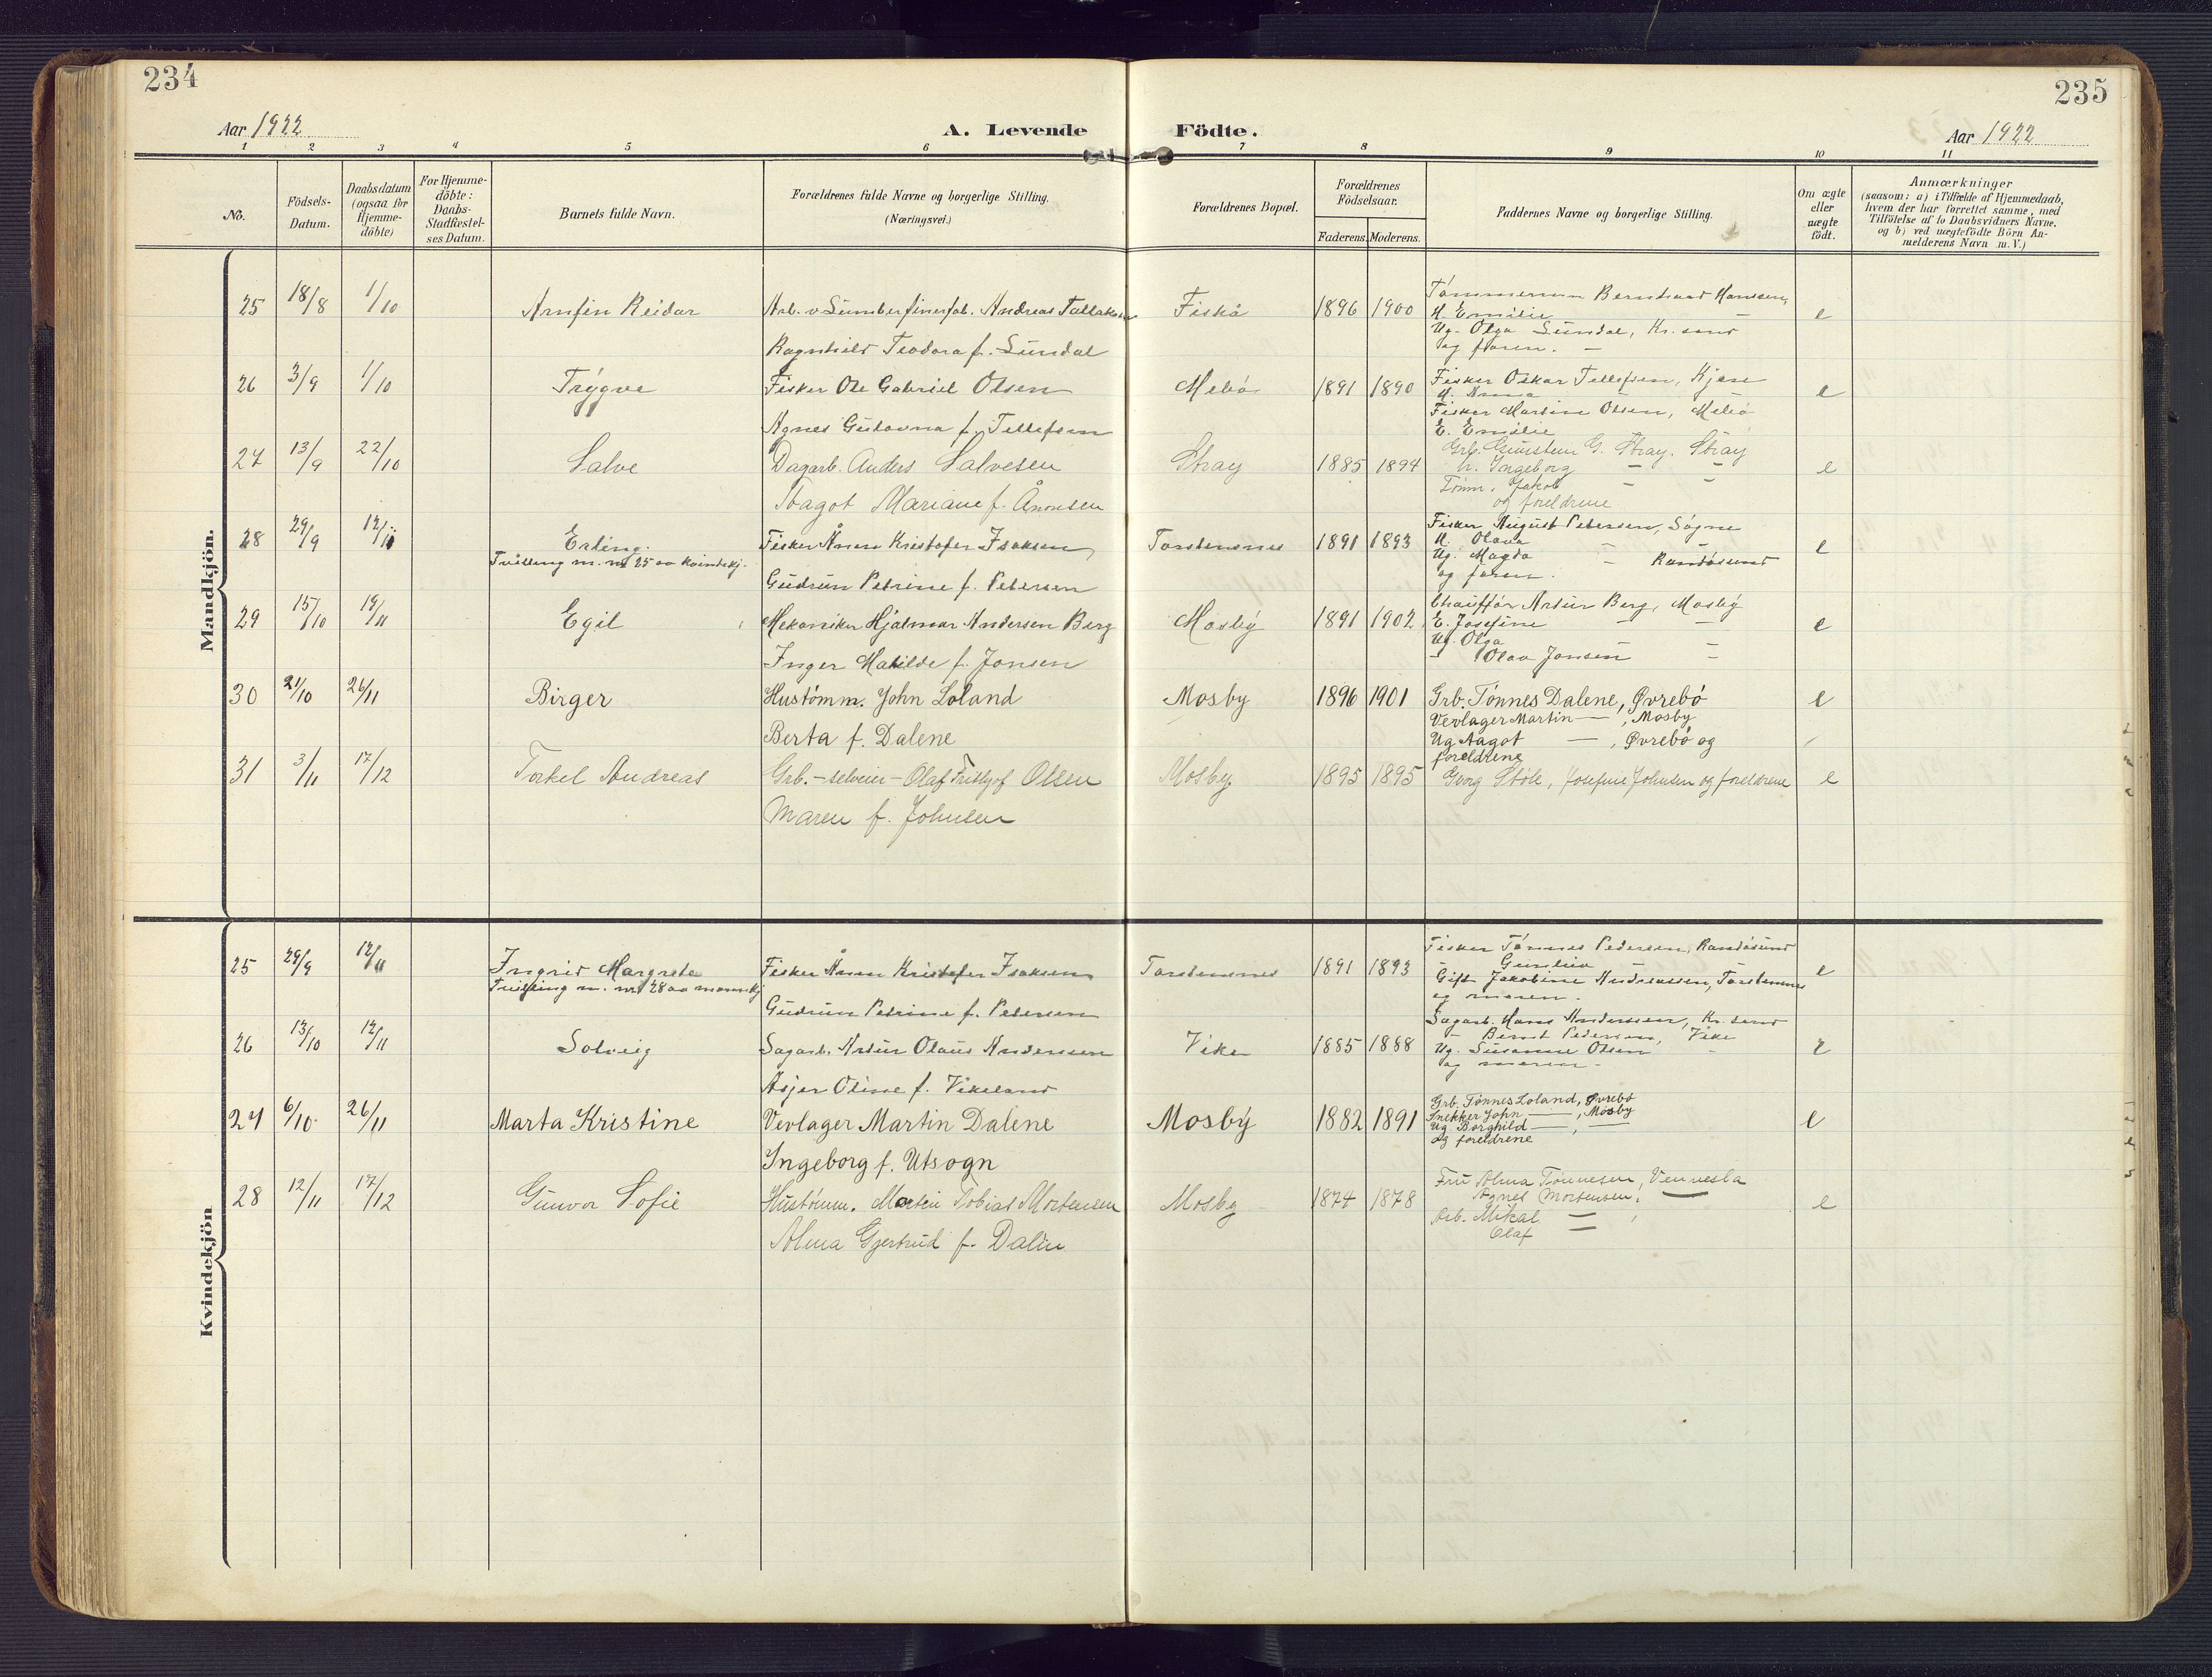 234
235
Aar 1922
A. Levende Födte.
Aar 1922
1 2 3 4 5 6 7 8 9 10 11
No.
Födsels-
Datum.
Daabsdatum
(ogsaa for
Hjemme-
döbte)
For Hjemme-
döbte:
Daabs-
Stadfæstel-
ses Datum.
Barnets fulde Navn.
Forældrenes fulde Navne og borgerlige Stilling.
(Næringsvei.)
Forældrenes Bopæl.
Forældrenes
Födselsaar.
Faderens. Moderens.
Faddernes Navne og borgerlige Stilling.
Om ægte
eller
uægte
födt.
Anmærkninger
(saasom: a) i Tilfælde af Hjemmedaab,
hvem der har forrettet samme, med
Tilföielse af to Daabsvidners Navne,
og b) ved uægtefödte Börn An-
melderens Navn m. V.)
Mandkjön.
25 18/8 1/10 Arnfin Reidar Arb. v Sumberfinerfab. Andreas Tallaksen Fiskå 1896 1900 e
Ragnhild Teodora f. Sundal
Tømmermann Bernhard Hanssen,
H. Emilie
Ug. Olga Sundal, Kr.sand
og faren.
26 3/9 1/10 Trygve Fisker Ole Gabriel Olsen Mebø 1891 1890 e
Agnes Gustavna f. Tellefsen
Fisker Oskar Tellefsen, Kjære
H. Anna
Fisker Martin Olsen, Mebø
E. Emilie
27 13/9 22/10 Salve Dagarb. Anders Salvesen Stray 1885 1894 e
Aagot Mariane f. Ånonsen
Grb. Gunstein G. Stray, Stray
h. Ingeborg
Tømm. Jakob
og foreldrene
28 29/9 12/11 Erling Fisker Ånen Kristofer Isaksen, Torstensnes 1891 1893 e
Tvilling m. nr 25 av kvindekj.
Gudrun Petrine f. Petersen
Fisker August Petersen, Søgne
H. Olava
Ug. Magda – Randøsund
og faren.
29 15/10 19/11 Egil Mekaniker Hjalmar Andersen Berg Mosby 1891 1902 e
Inger Matilde f. Jonsen
Chauffør Artur Berg, Mosby
E. Josefine
Ug. Olga
– Olav Jonsen –
30 21/10 26/11 Birger Hustømm. John Loland Mosby 1896 1901 e
Berta f. Dalene
Grb. Tønnes Dalene, Øvrebø
Vevlager Martin — , Mosby
Ug Aagot — , Øvrebø og
foreldrene
31 3/11 17/12 Torkel Andreas Grb. – selveier – Olaf Fritjof Olsen Mosby 1895 1895 Georg Støle, Josefine Johnsen og foreldrene e
Maren f. Johnsen
Kvindekjön
25 29/9 12/11 Ingrid Margrete Fisker Ånen Kristofer Isaksen Torstensnes 1891 1893 e
Tvilling m. nr 28 av mannkj
Gudrun Petrine f. Petersen
Fisker Tønnes Pedersen, Randøsund
Gunhild
Gift Jakobine Andreassen, Torstensnes
og moren.
26 13/10 12/11 Solveig Sagarb. Artur Olaus Andersen Vike 1885 1888 e
Asjer Oline f. Vikeland
Sagarb. Hans Anderssen, Kr.sand
– Bernt Pedersen, Vike
Ug. Susanne Olsen
og moren.
27 6/10 26/11 Marta Kristine Vevlager Martin Dalene Mosby 1882 1891 e
Ingeborg f. Utsogn
Grb. Tønnes Loland, Øvrebø
Snekker John — , Mosby
Ug Borghild — , —
og foreldrene
28 12/11 17/12 Gunvor Sofie Hustømm. Martin Tobias Mortensen Mosby 1874 1878 e
Alma Gjertrud f. Dalen
Fru Alma Tønnesen, Vennesla
Agnes Mortensen, —
Arb. Mikal —
Olaf —